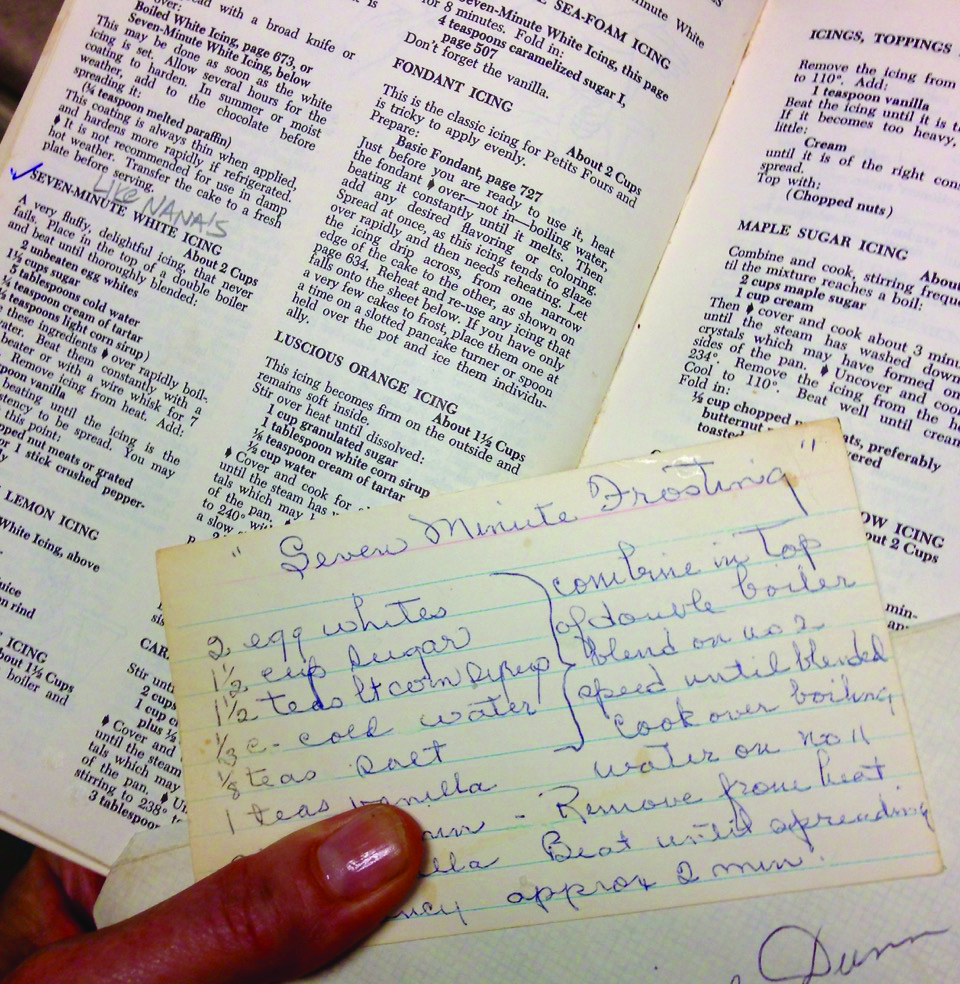 spread with a broad knife or
over:
Boiled White Icing, page 673, or
Seven-Minute White Icing, below
This may be done as soon as the white
icing is set. Allow several hours for the
coating to harden. In summer or moist
weather, add to the chocolate before
spreading it:
(¼ teaspoon melted paraffin)
This coating is always thin when applied,
and hardens more rapidly if refrigerated.
♦ It is not recommended for use in damp
hot weather. Transfer the cake to a fresh
plate before serving.
LIKE NANA'S
SEVEN-MINUTE WHITE ICING
About 2 Cups
A very fluffy, delightful icing, that never
fails. Place in the top of a double boiler
and beat until thoroughly blended:
2 unbeaten egg whites
1½ cups sugar
5 tablespoons cold water
¼ teaspoon cream of tartar
½ teaspoons light corn sirup)
these ingredients ♦ over rapidly boil-
water. Beat them constantly with a
beater or with a wire whisk for 7
Remove icing from heat. Add:
spoon vanilla
beating until the icing is the
stency to be spread. You may
this point:
pped nut meats or grated
or 1 stick crushed pepper-
LEMON ICING
White Icing, above
juice
on rind
ICING
bout 1¼ Cups
boiler and
SEA-FOAM ICING
Seven-Minute White
for 8 minutes. Fold in:
Seven-Minute White Icing, this page
4 teaspoons caramelized sugar I,
page 507
Don't forget the vanilla.
FONDANT ICING
About 2 Cups
This is the classic icing for Petits Fours and
is tricky to apply evenly.
Prepare:
Basic Fondant, page 727
Just before you are ready to use it, heat
the fondant ♦ over—not in—boiling water,
beating it constantly until it melts. Then
add any desired flavoring or coloring.
Spread at once, as this icing tends to glaze
over rapidly and then needs reheating. Let
the icing drip across, from one narrow
edge of the cake to the other, as shown on
page 634. Reheat and re-use any icing that
falls onto the sheet below. If you have only
a very few cakes to frost, place them one at
a time on a slotted pancake turner or spoon
held over the pot and ice them individu-
ally.
LUSCIOUS ORANGE ICING
About 1½ Cups
This icing becomes firm on the outside and
remains soft inside.
Stir over heat until dissolved:
1 cup granulated sugar
1 tablespoon white corn sirup
⅛ teaspoon cream of tartar
½ cup water
♦ Cover and cook for
until the steam has
tals which may
of the pan.
to 240°
a slow
CAR
Stir unt
2 cups
1 cup
plus
♦ Cover and
until the steam
tals which may
of the pan. ♦ Un
stirring to 238°
3 tablespoon
ICINGS, TOPPINGS
Remove the icing from
to 110°. Add:
1 teaspoon vanilla
Beat the icing until it is
If it becomes too heavy,
little:
Cream
until it is of the right cons
spread.
Top with:
(Chopped nuts)
MAPLE SUGAR ICING
Abou
Combine and cook, stirring freque
til the mixture reaches a boil:
2 cups maple sugar
1 cup cream
Then ♦ cover and cook about 3 min
until the steam has washed down
crystals which may have formed on
sides of the pan. ♦ Uncover and coo
234°. Remove the icing from the h
Cool to 110°. Beat well until cream
Fold in:
½ cup chopped nuts, preferably
butternut
toasted
OW ICING
out 2 Cups
min-
" Seven Minute Frosting "
2 egg whites
1½ cup sugar
1½ teas lt corn syrup
⅓ c - cold water
⅛ teas salt
1 teas vanilla
combine in top
of double boiler
blend on no 2
speed until blended
Cook over boiling
water on no 11
- Remove from heat
Beat until spreading
approx 2 min.
Dunn